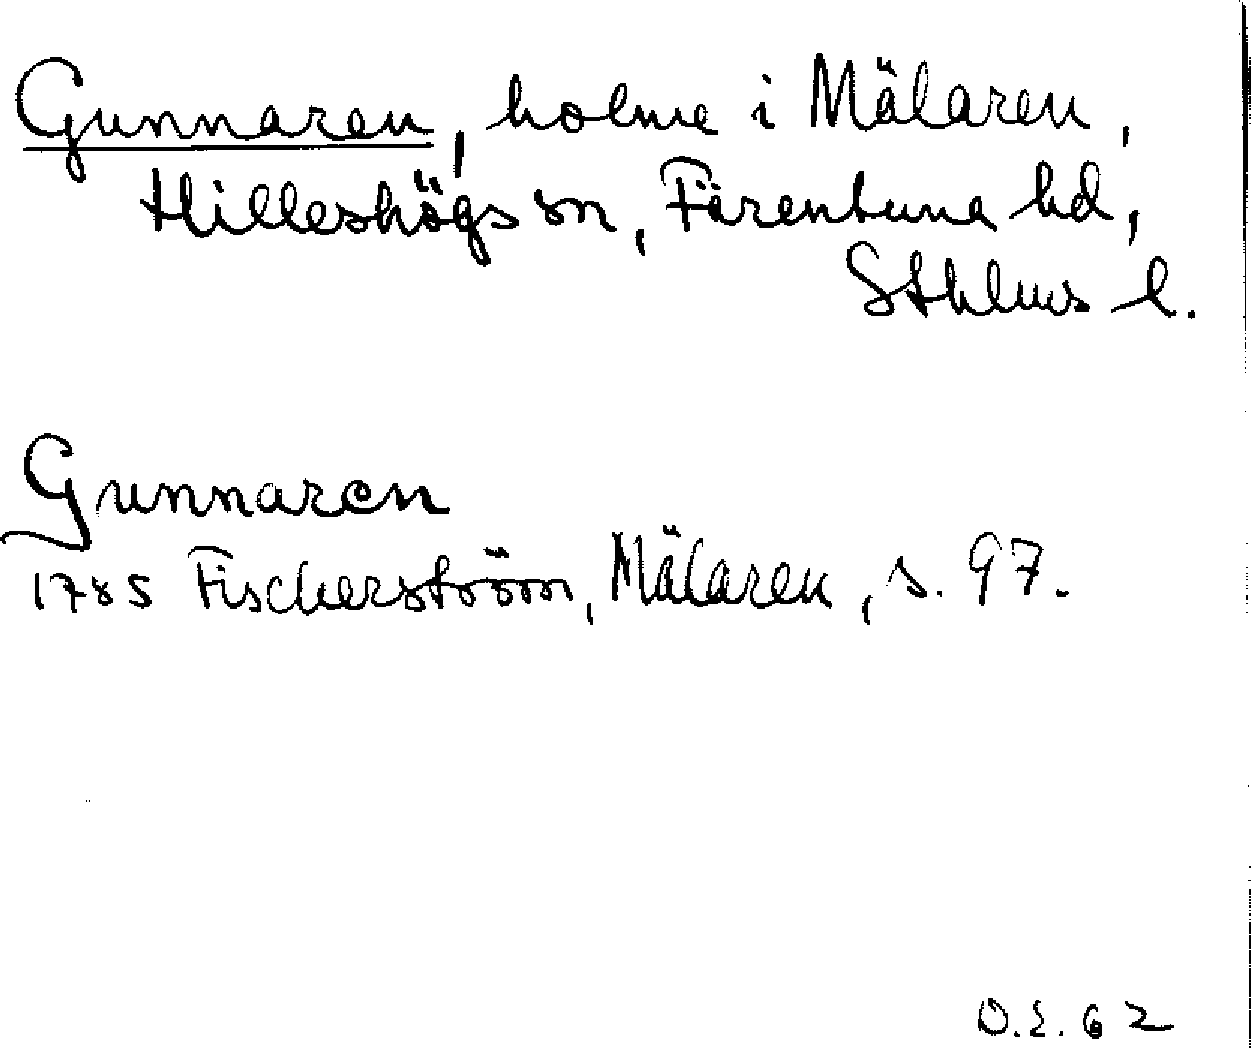 Gunnaren, holme i Mälaren,
Hilleshögs sn, Färentuna hd,
Sthlms l.
Gunnaren
1785 Fischerström, Mälaren, s. 97.
O.S. 62